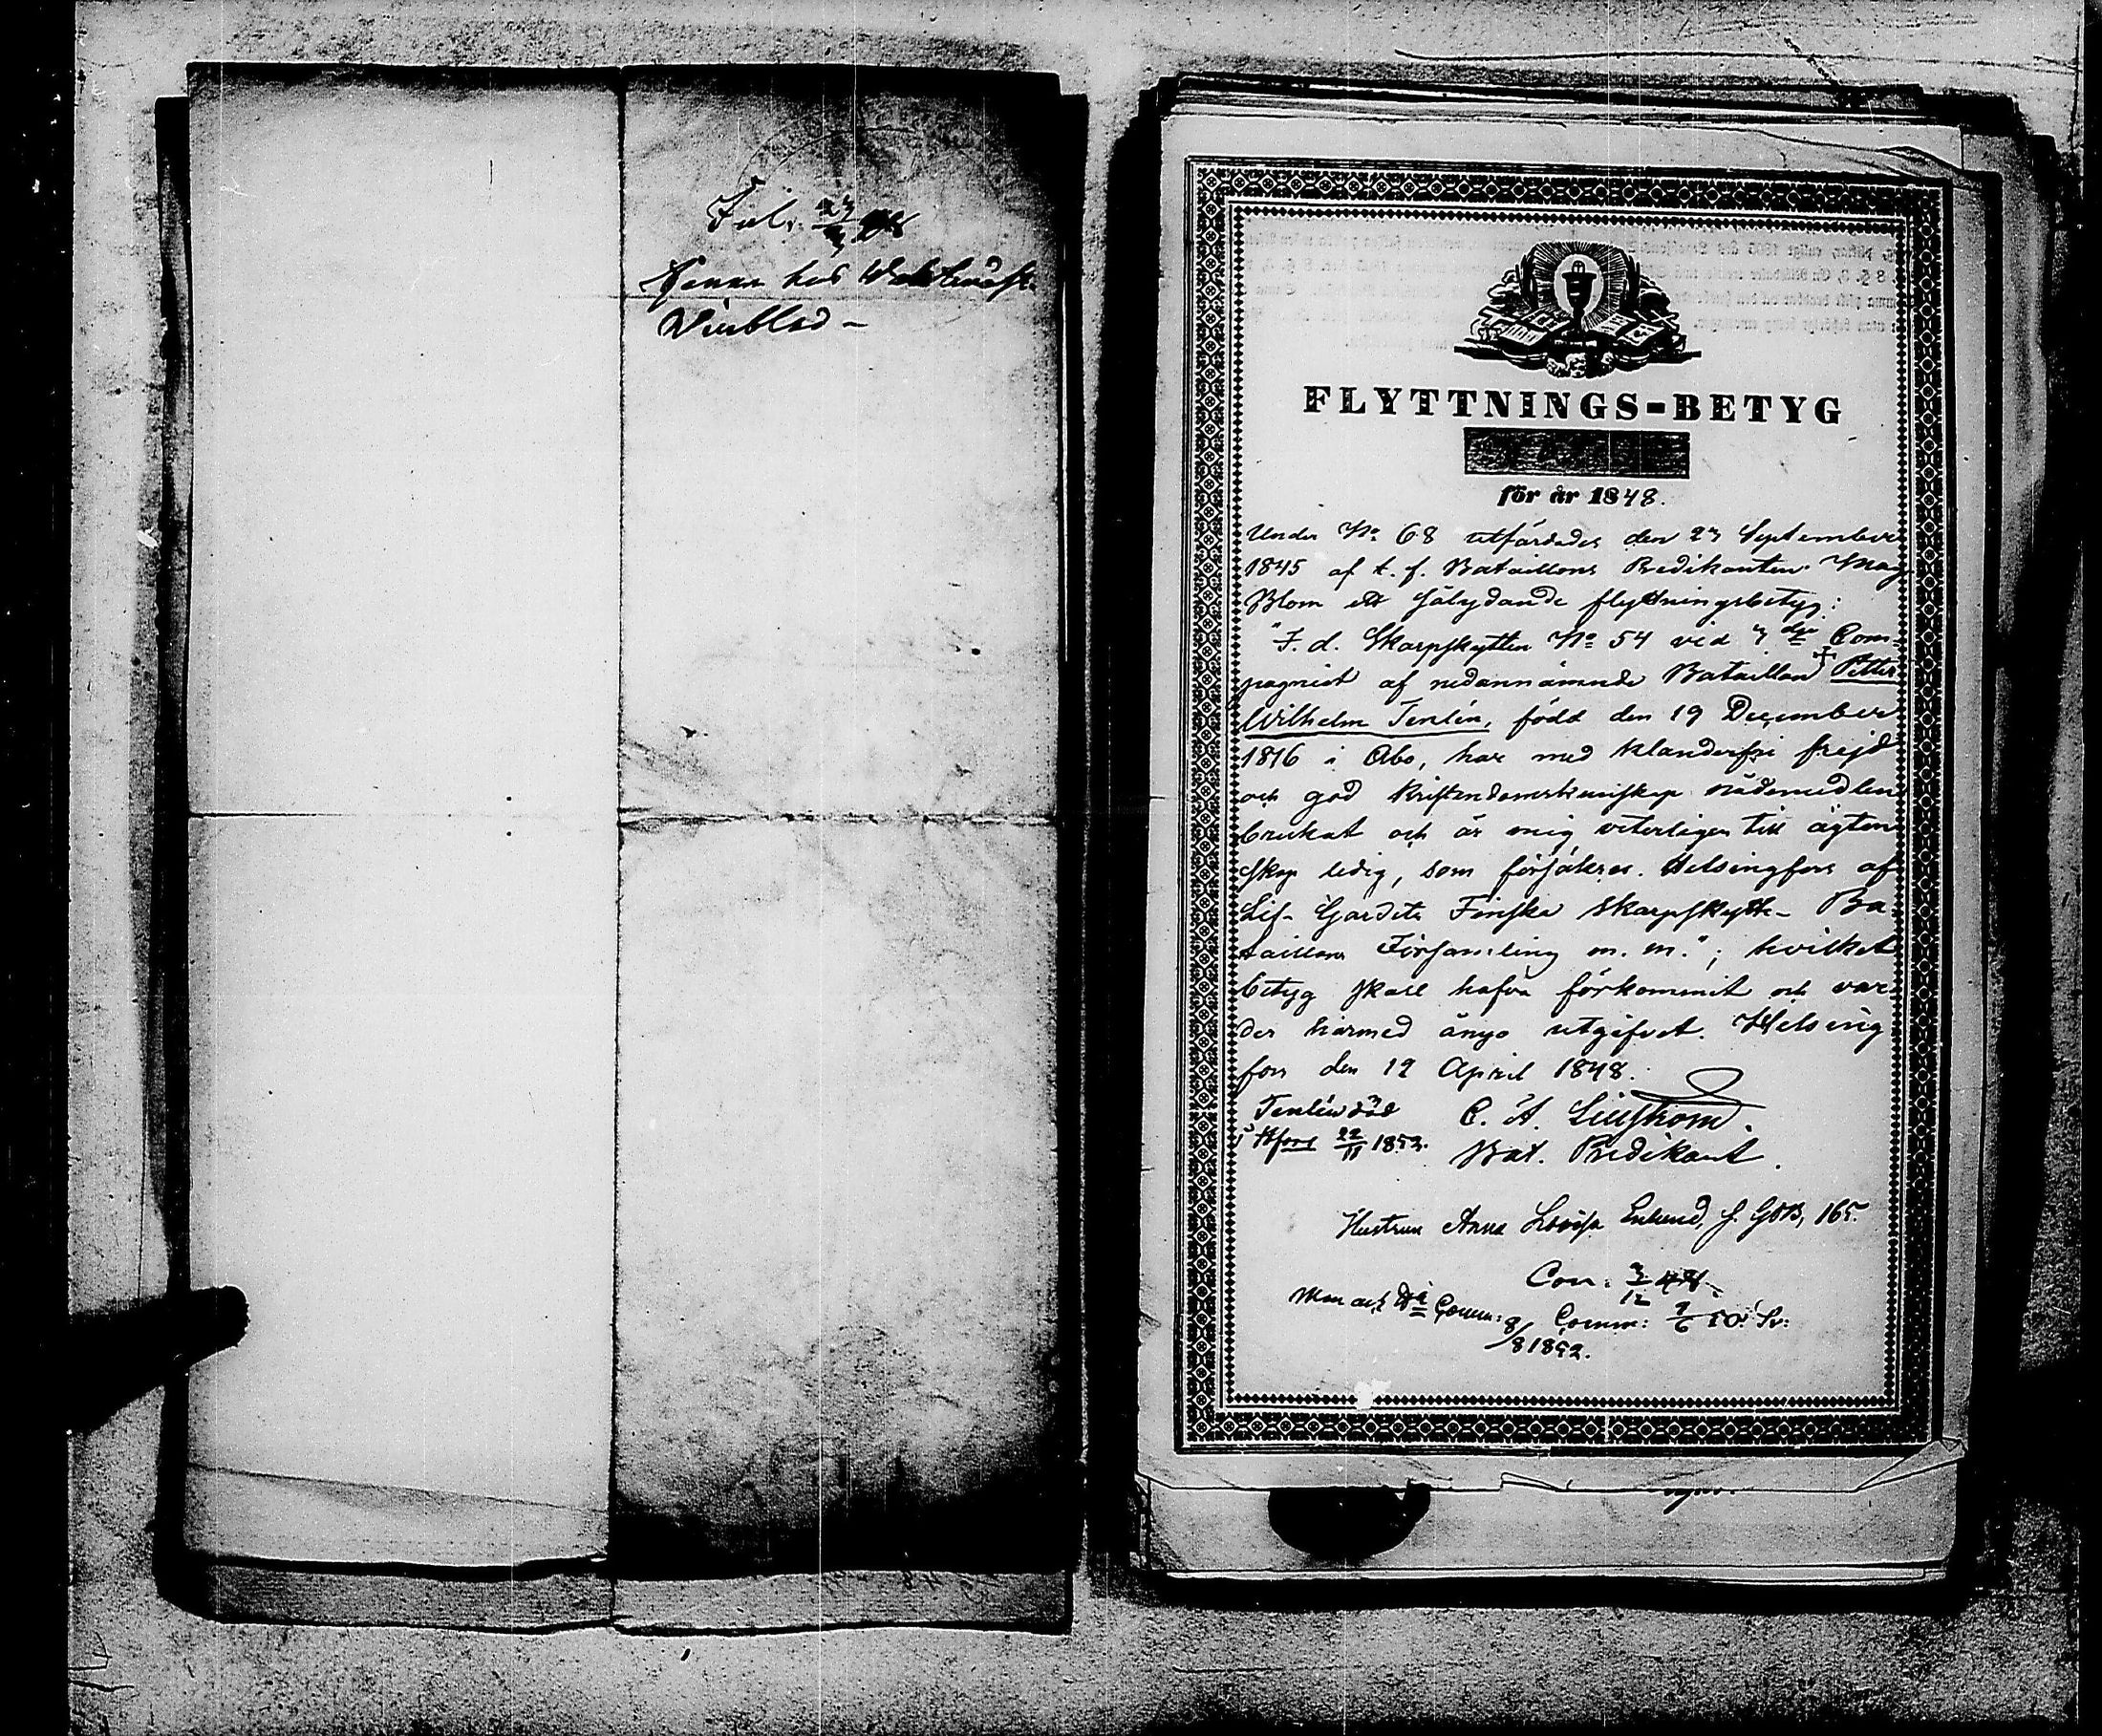 hos
Winblad -
FLYTTNINGS-BETYG
för år 1848.
Under No 68 utfärdades den 23 September
1845 af t. f. Bataillons Predikanten Mag
Blom ett sålydande flyttningsbetyg:
"F. d. Skarpskytten No 54 vid 3dje Com-
pagniet af nedannämnde Bataillon Petter
Wilhelm Tenlén, född den 19 December
1816 i Åbo, har med klanderfri frejd
och god kristendomskunskap nådemedlen
brukat och är mig veterligen till ägten
skap ledig, som försäkras. Helsingfors af
Lif-Gardets Finska Skarpskytte-Ba-
taillons Församling m. m."; hvilket
betyg skall hafva förkommit och var
der härmed ånyo utgifvet. Helsing
fors den 12 April 1848.
Tenlén död
i Hfors 22/11 1853.
C. A. Lillström.
Bat. Predikant.
Hustrun Anna Lovisa Enlund, f. 165.
Con. 3/12
Man och Comm: 8/8 1852.
Comm: 9/6 50.